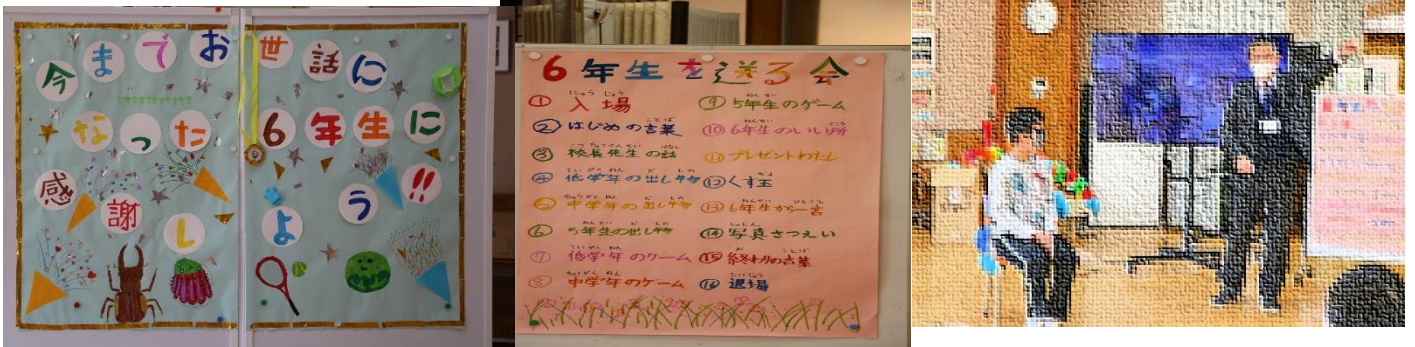 今までお世話に
なった6年生に
感謝しよう!!
6年生を送る会
①入場
②はじめの言葉
③校長先生の話
④低学年の出し物
⑤中学年の出し物
⑥5年生の出し物
⑦低学年のゲーム
⑧中学年のゲーム
⑨5年生のゲーム
⑩6年生のいい所
⑪プレゼントわたし
⑫くす玉
⑬6年生から一言
⑭写真さつえい
⑮終わりの言葉
⑯退場